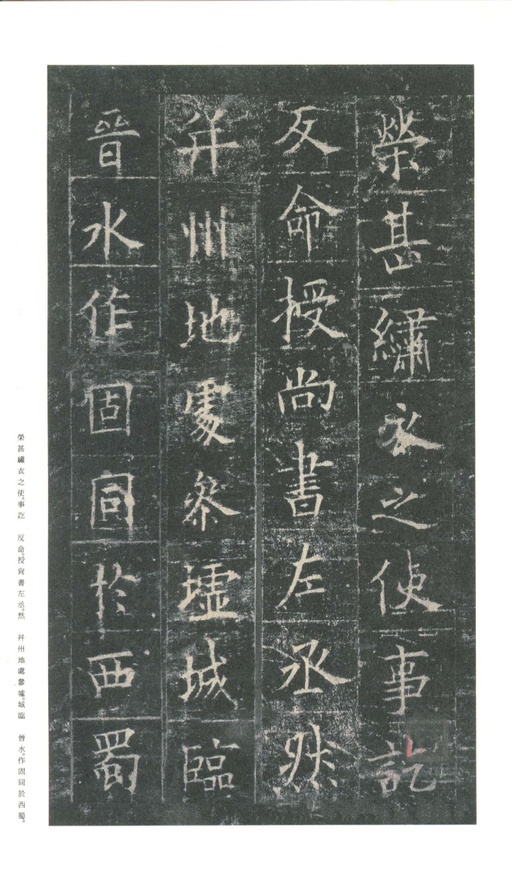 榮甚繡衣之使事訖
反命授尚書左丞然
并州地處參墟城臨
晉水作固同於西蜀
榮甚繡衣之使。事訖 反命。授尚書左丞。然 幷州地處參墟。城臨 晉水。作固同於西蜀。